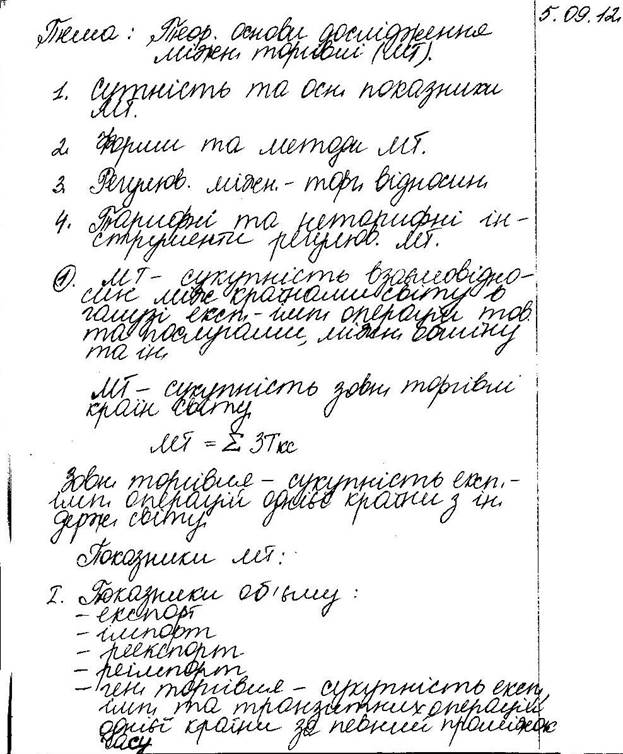 5.09.12.
Тема: Теор. основи дослідження
міжн. торгівлі (МТ).
1. Сутність та осн. показники
МТ.
2. Форми та методи МТ.
3. Регулюв. міжн.-торг. відносин.
4. Тарифні та нетарифні ін-
струменти регулюв. МТ.
1. МТ – сукупність взаємовідно-
син між країнами світу в
галузі експ.-імп. операцій тов.
та послугами, міжн. обміну
та ін.
МТ – сукупність зовн. торгівлі
країн світу.
МТ = Σ ЗТкс
Зовн. торгівля – сукупність експ.-
імп. операцій однієї країни з ін.
держ. світу.
Показники МТ:
I. Показники об'єму:
- експорт
- імпорт
- реекспорт
- реімпорт
- ген. торгівля – сукупність експ.,
імп. та транзитних операцій
однієї країни за певний проміжок
часу